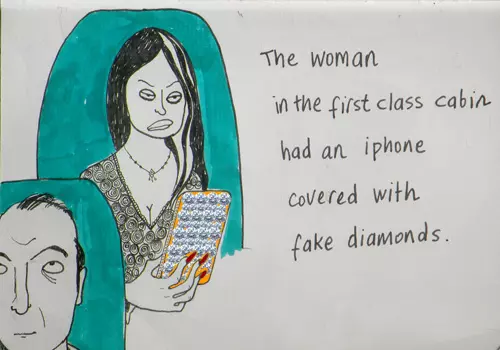 The woman
in the first class cabin
had an iphone
covered with
fake diamonds.